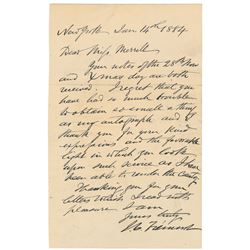 New York Jan 14th 1884
Dear Miss Merrell
Your notes of the 28th Nov
and Xmas day are both
received. I regret that you
have had so much trouble
to obtain so small a thing
as my autograph and I
thank you for your kind
expressions and the favorable
light in which you look
upon such service as I have
been able to render the Country
Thanking you for your
letters which I read with
pleasure I am
Yours truly